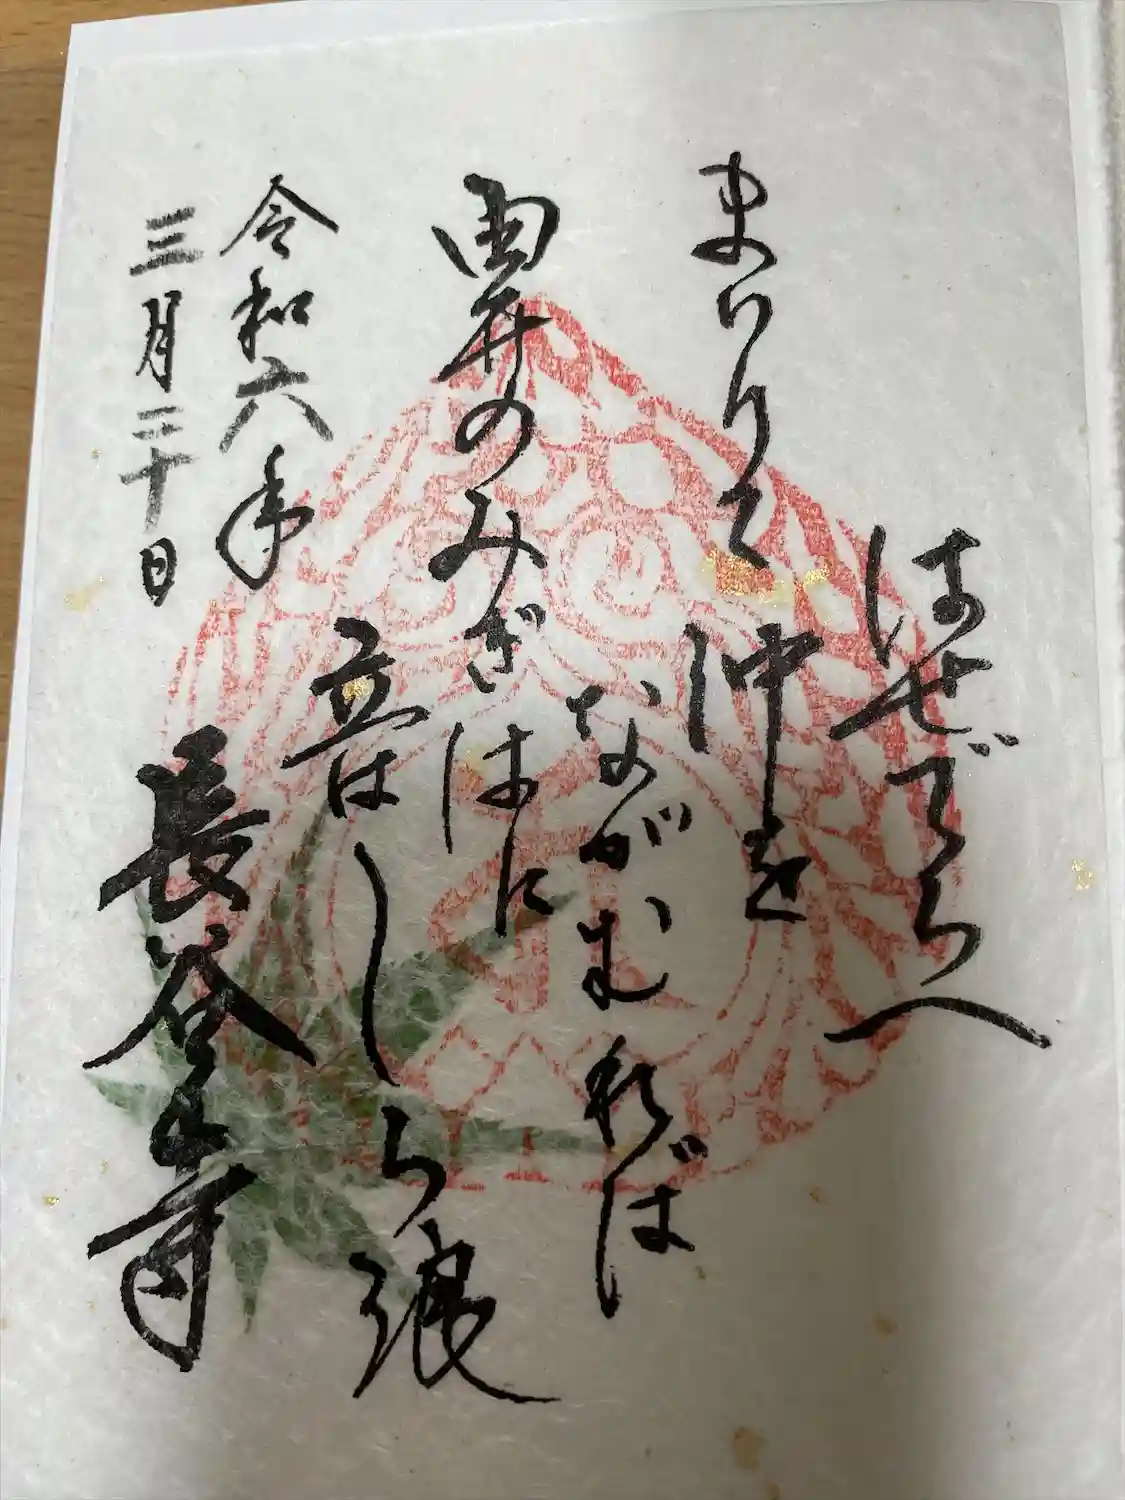 はせでらへ
まいりて
沖を
ながむれば
由井のみぎはに
音はしら浪
令和六年
三月二十日
長谷寺